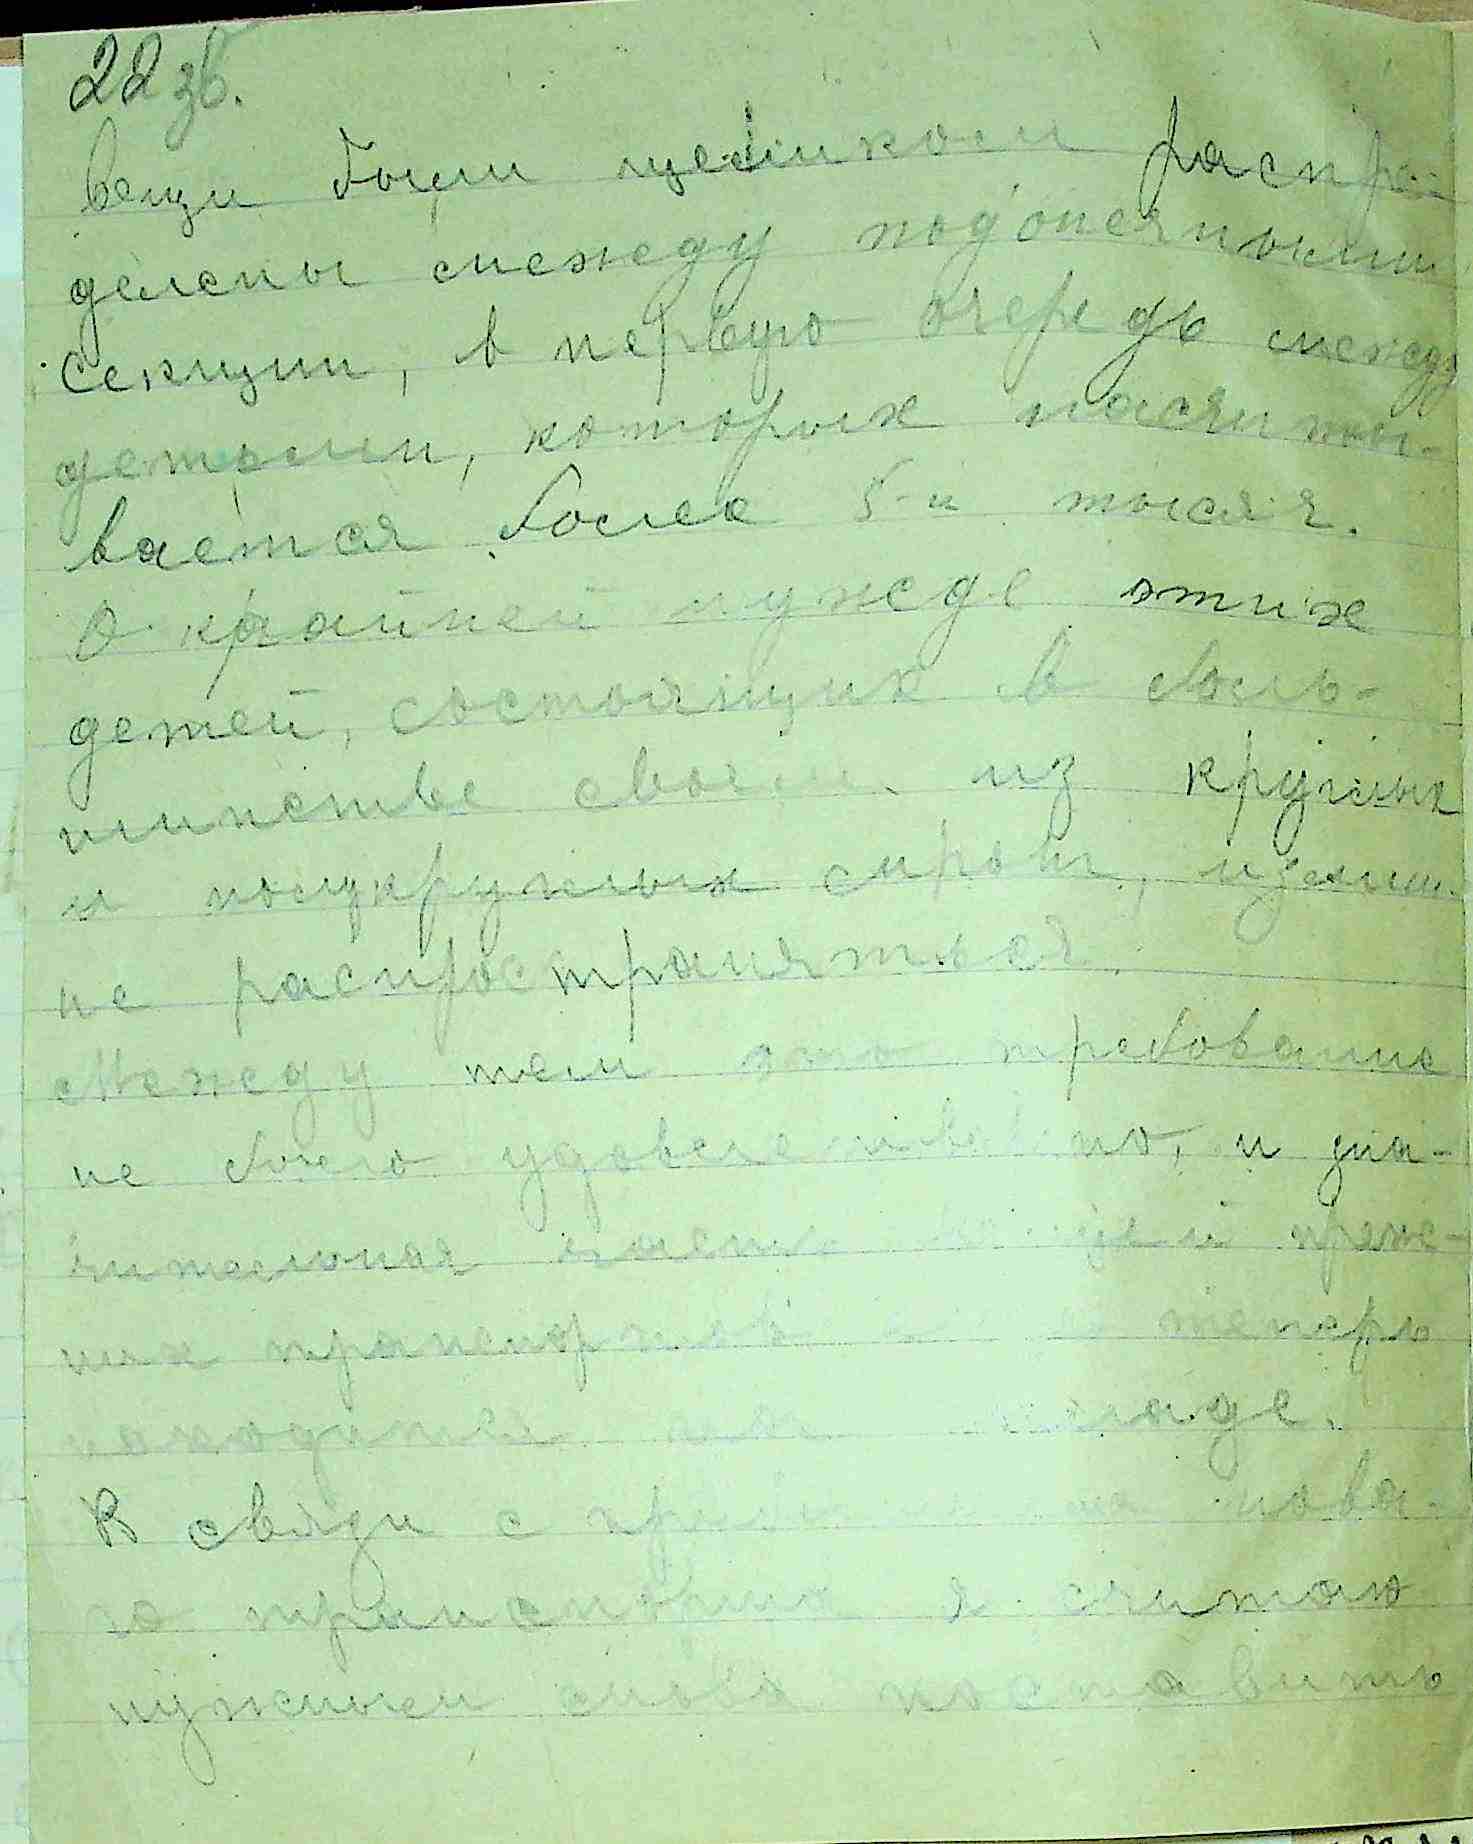 22 зв.
вещи были целиком распре-
делены между подопечными
секции, в первую очередь между
детьми, которых насчиты-
вается более 5-и тысяч.
О крайней нужде этих
детей, состоящих в боль-
шинстве своем из круглых
и полукруглых сирот, излишне
не распространяться.
Между тем это требование
не было удовлетворено, и зна-
чительная часть вещей преж-
них транспортов и теперь
находится на складе.
В связи с прибытием ново-
го транспорта я считаю
нужным снова поставить